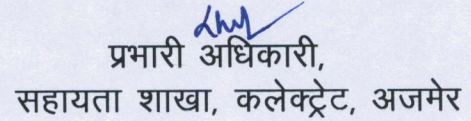 प्रभारी अधिकारी,
सहायता शाखा, कलेक्ट्रेट, अजमेर